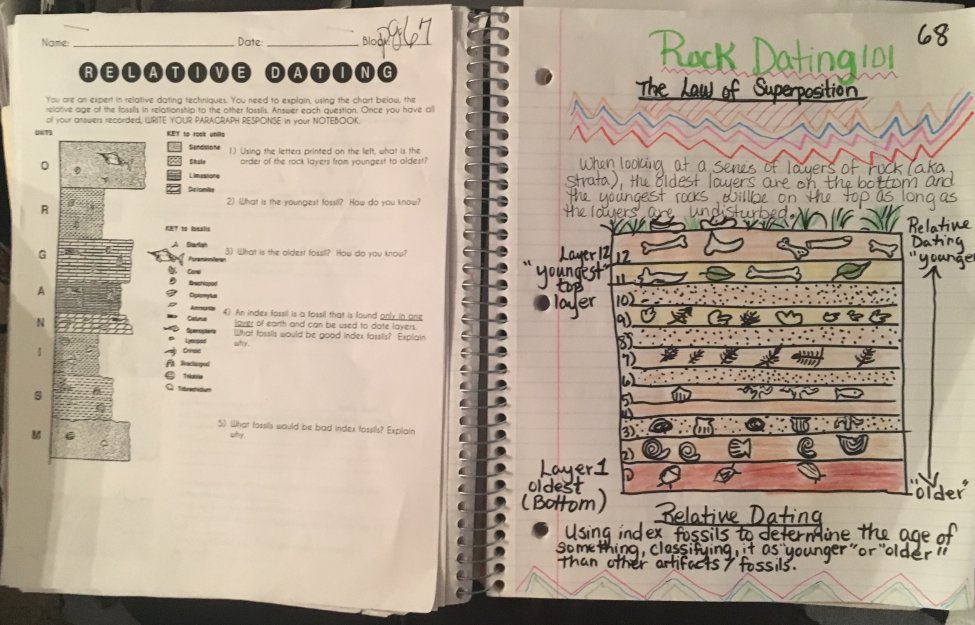 Name: ____________ Date: ____________ Block:
pg 67
RELATIVE DATING
You are an expert in relative dating techniques. You need to explain, using the chart below, the
relative age of the fossils in relationship to the other fossils. Answer each question. Once you have all
of your answers recorded, WRITE YOUR PARAGRAPH RESPONSE in your NOTEBOOK.
UNITS
O
R
G
A
N
I
S
M
KEY to rock units
Sandstone
Shale
Limestone
Dolomite
KEY to fossils
Starfish
Foraminiferan
Coral
Brachiopod
Ammonite
Crinoid
Trilobite
1) Using the letters printed on the left, what is the
order of the rock layers from youngest to oldest?
2) What is the youngest fossil? How do you know?
3) What is the oldest fossil? How do you know?
4) An index fossil is a fossil that is found only in one
layer of earth and can be used to date layers.
What fossils would be good index fossils? Explain
why.
5) What fossils would be bad index fossils? Explain
why.
68
Rock Dating 101
The Law of Superposition
When looking at a series of layers of rock (aka
strata), the oldest layers are on the bottom and
the youngest rocks, will be on the top as long as
the layers are undisturbed.
Relative
Dating
"younger
Layer 12
"youngest"
top
layer
12
11
10)
9)
8)
7)
6)
5)
4)
3)
2)
1)
Layer 1
oldest
(Bottom)
"older"
Relative Dating
Using index fossils to determine the age of
something, classifying, it as "younger" or "older"
than other artifacts / fossils.